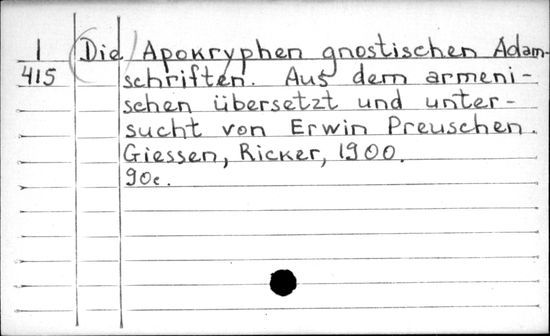 1 (Die) Apokryphen gnostischen Adam-
415 schriften. Aus dem armeni-
schen übersetzt und unter-
sucht von Erwin Preuschen.
Giessen, Ricker, 1900.
90c.